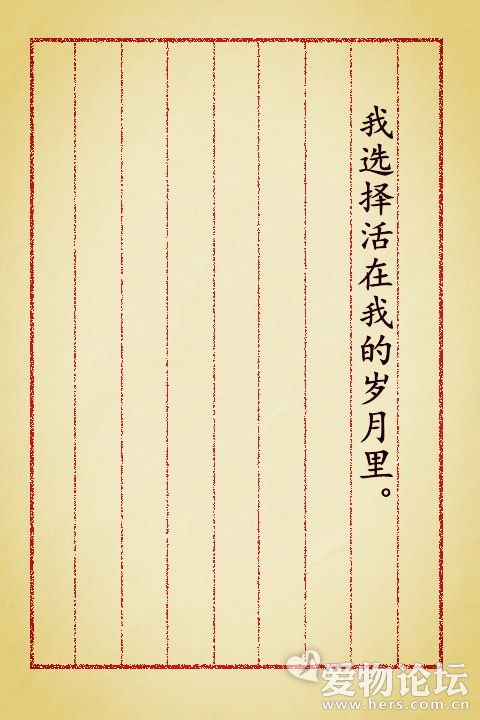 我选择活在我的岁月里。
爱物论坛
www.hers.com.cn